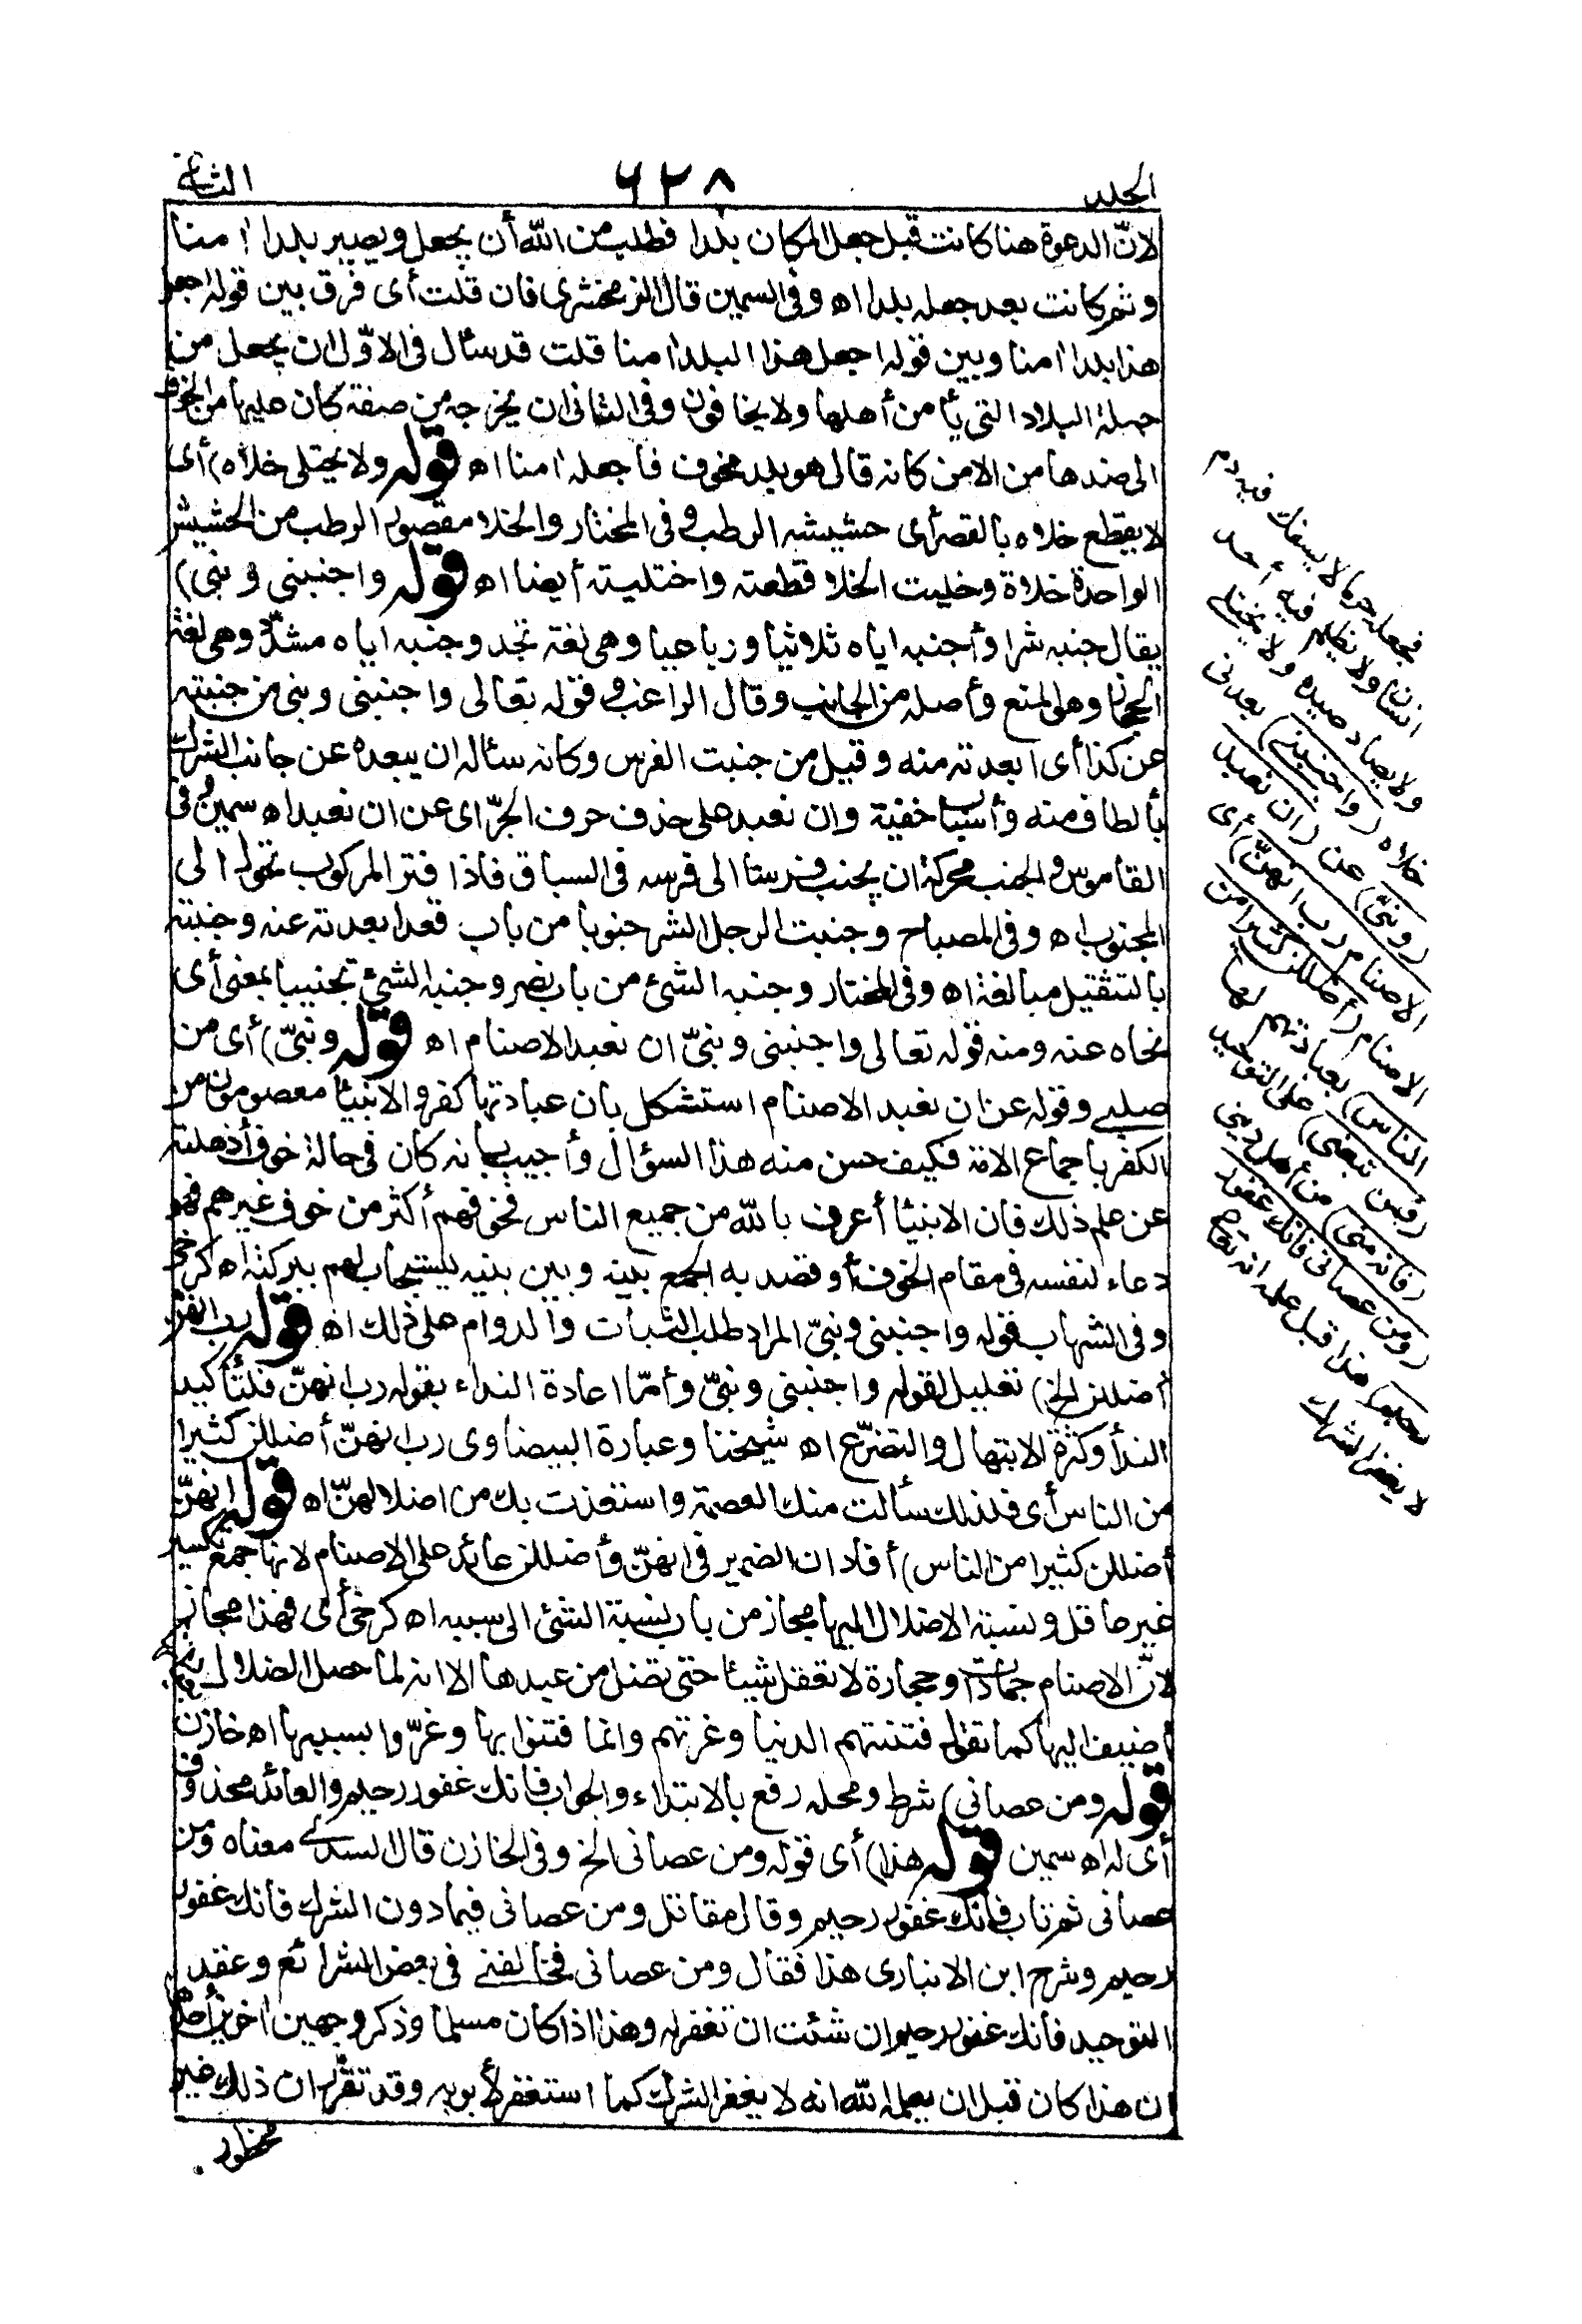 الجلد
٦٢٨
الثاني
لانّ الدعوة هنا كانت قبل جعل المكان بلدا فطلب من الله أن يجعل ويصير بلدا امنا
وثم كانت بعد جعله بلدا اه وفى السمين قال الزمخشرى فان قلت أى فرق بين قوله اجعل
هذا بلدا امنا وبين قوله اجعل هذا البلد امنا قلت قد سئال فى الاوّل ان يجعل من
جملة البلاد التى يأمن أهلها ولا يخافون وفى الثانى ان يخرجه من صفة كان عليها من الخوف
الى ضدها من الامن كانه قال هو بلد مخوف فاجعله امنا اه قوله ولا يختلى خلاه) أى
لا يقطع خلاه بالقصر أى حشيشه الرطب وفى المختار والخلا مقصور الرطب من الحشيش
الواحدة خلاة وخليت الخلا قطعته واختليته أيضا اه قوله واجنبنى وبنى)
يقال جنبه شرا وأجنبه اياه ثلاثيا ورباعيا وهى لغة نجد وجنبه اياه مشدّدا وهى لغة
الحجاز وهو المنع وأصله من الجانب وقال الراغب فى قوله تعالى واجنبنى وبنى من جنبته
عن كذا أى ابعدته منه وقيل من جنبت الفرس وكانه سئاله ان يبعده عن جانب الشرك
بألطاف منه وأسباب خفية وان نعبد على حذف حرف الجرّ اى عن ان نعبد اه سمين وفى
القاموس والجنب محركة ان يجنب فرسا الى فرسه فى السباق فاذا فتر المركوب تحول الى
المجنوب اه وفى المصباح وجنبت الرجل الشر جنوبا من باب قعد ابعدته عنه وجنبته
بالتثقيل مبالغة اه وفى المختار وجنبه الشئ من باب نصر وجنبه الشئ تجنيبا بمعنى أى
نحاه عنه ومنه قوله تعالى واجنبنى وبنىّ ان نعبد الاصنام اه قوله وبنىّ) أى من
صلبى وقوله عن ان نعبد الاصنام استشكل بان عبادتها كفر والانبيا معصومون من
الكفر باجماع الامة فكيف حسن منه هذا السؤال وأجيب بانه كان فى حالة خوف أذهلته
عن علم ذلك فان الانبيا أعرف بالله من جميع الناس فخوفهم أكثر من خوف غيرهم فهو
دعاء لنفسه فى مقام الخوف أو قصد به الجمع بينه وبين بنيه ليستجاب لهم ببركته اه كرخى
وفى الشهاب قوله واجنبنى وبنىّ المراد طلب الثبات والدوام على ذلك اه قوله رب انهنّ
أضللن الخ) تعليل لقوله واجنبنى وبنىّ وأمّا اعادة النداء بقوله رب انهنّ فلتأكيد
الندأ وكثرة الابتهال والتضرّع اه شيخنا وعبارة البيضاوى رب انهنّ أضللن كثيرا
من الناس أى فلذلك سألت منك العصمة واستعذت بك من اضلالهنّ اه قوله انهنّ
أضللن كثيرا من الناس) أفاد ان الضمير فى انهنّ وأضللن عائد على الاصنام لانها جمع تكسير
غير عاقل ونسبة الاضلال اليها مجاز من باب نسبة الشئ الى سببه اه كرخى أى فهذا مجاز
لانّ الاصنام جمادات وحجارة لا تعقل شيئا حتى تضل من عبدها الا انه لما حصل الضلال
أضيف اليها كما تقول فتنتهم الدنيا وغرتهم وانما فتنوا بها وغرّوا بسببها اه خازن
قوله ومن عصانى) شرط ومحله رفع بالابتداء والجواب فانك غفور رحيم والعائد محذوف
أى له اه سمين قوله هذا) أى قوله ومن عصانى الخ وفى الخازن قال السدى معناه ومن
عصانى ثم تاب فانك غفور رحيم وقال مقاتل ومن عصانى فيما دون الشرك فانك غفور
رحيم وشرح ابن الانبارى هذا فقال ومن عصانى فخالفنى فى بعض الشرائع وعقد
التوحيد فانك غفور رحيم ان شئت ان تغفر له وهذا اذا كان مسلما وذكر وجهين اخرين أحدهما
ان هذا كان قبل ان يعلمه الله انه لا يغفر الشرك كما استغفر لأبويه وقد تقرّر ان ذلك غير
محظور
فجعله حرما لا يسفك فيه دم
انسان ولا يظلم فيه أحد
ولا يصاد صيده ولا يختلى
خلاه (واجنبنى) بعدنى
(وبنىّ) عن (ان نعبد
الاصنام رب انهنّ) أى
الاصنام (أضللن كثيرا من
الناس) بعبادتهم لها
(فمن تبعنى) على التوحيد
(فانه منى) من أهل دينى
(ومن عصانى فانك غفور
رحيم) هذا قبل علمه انه تعالى
لا يغفر الشرك